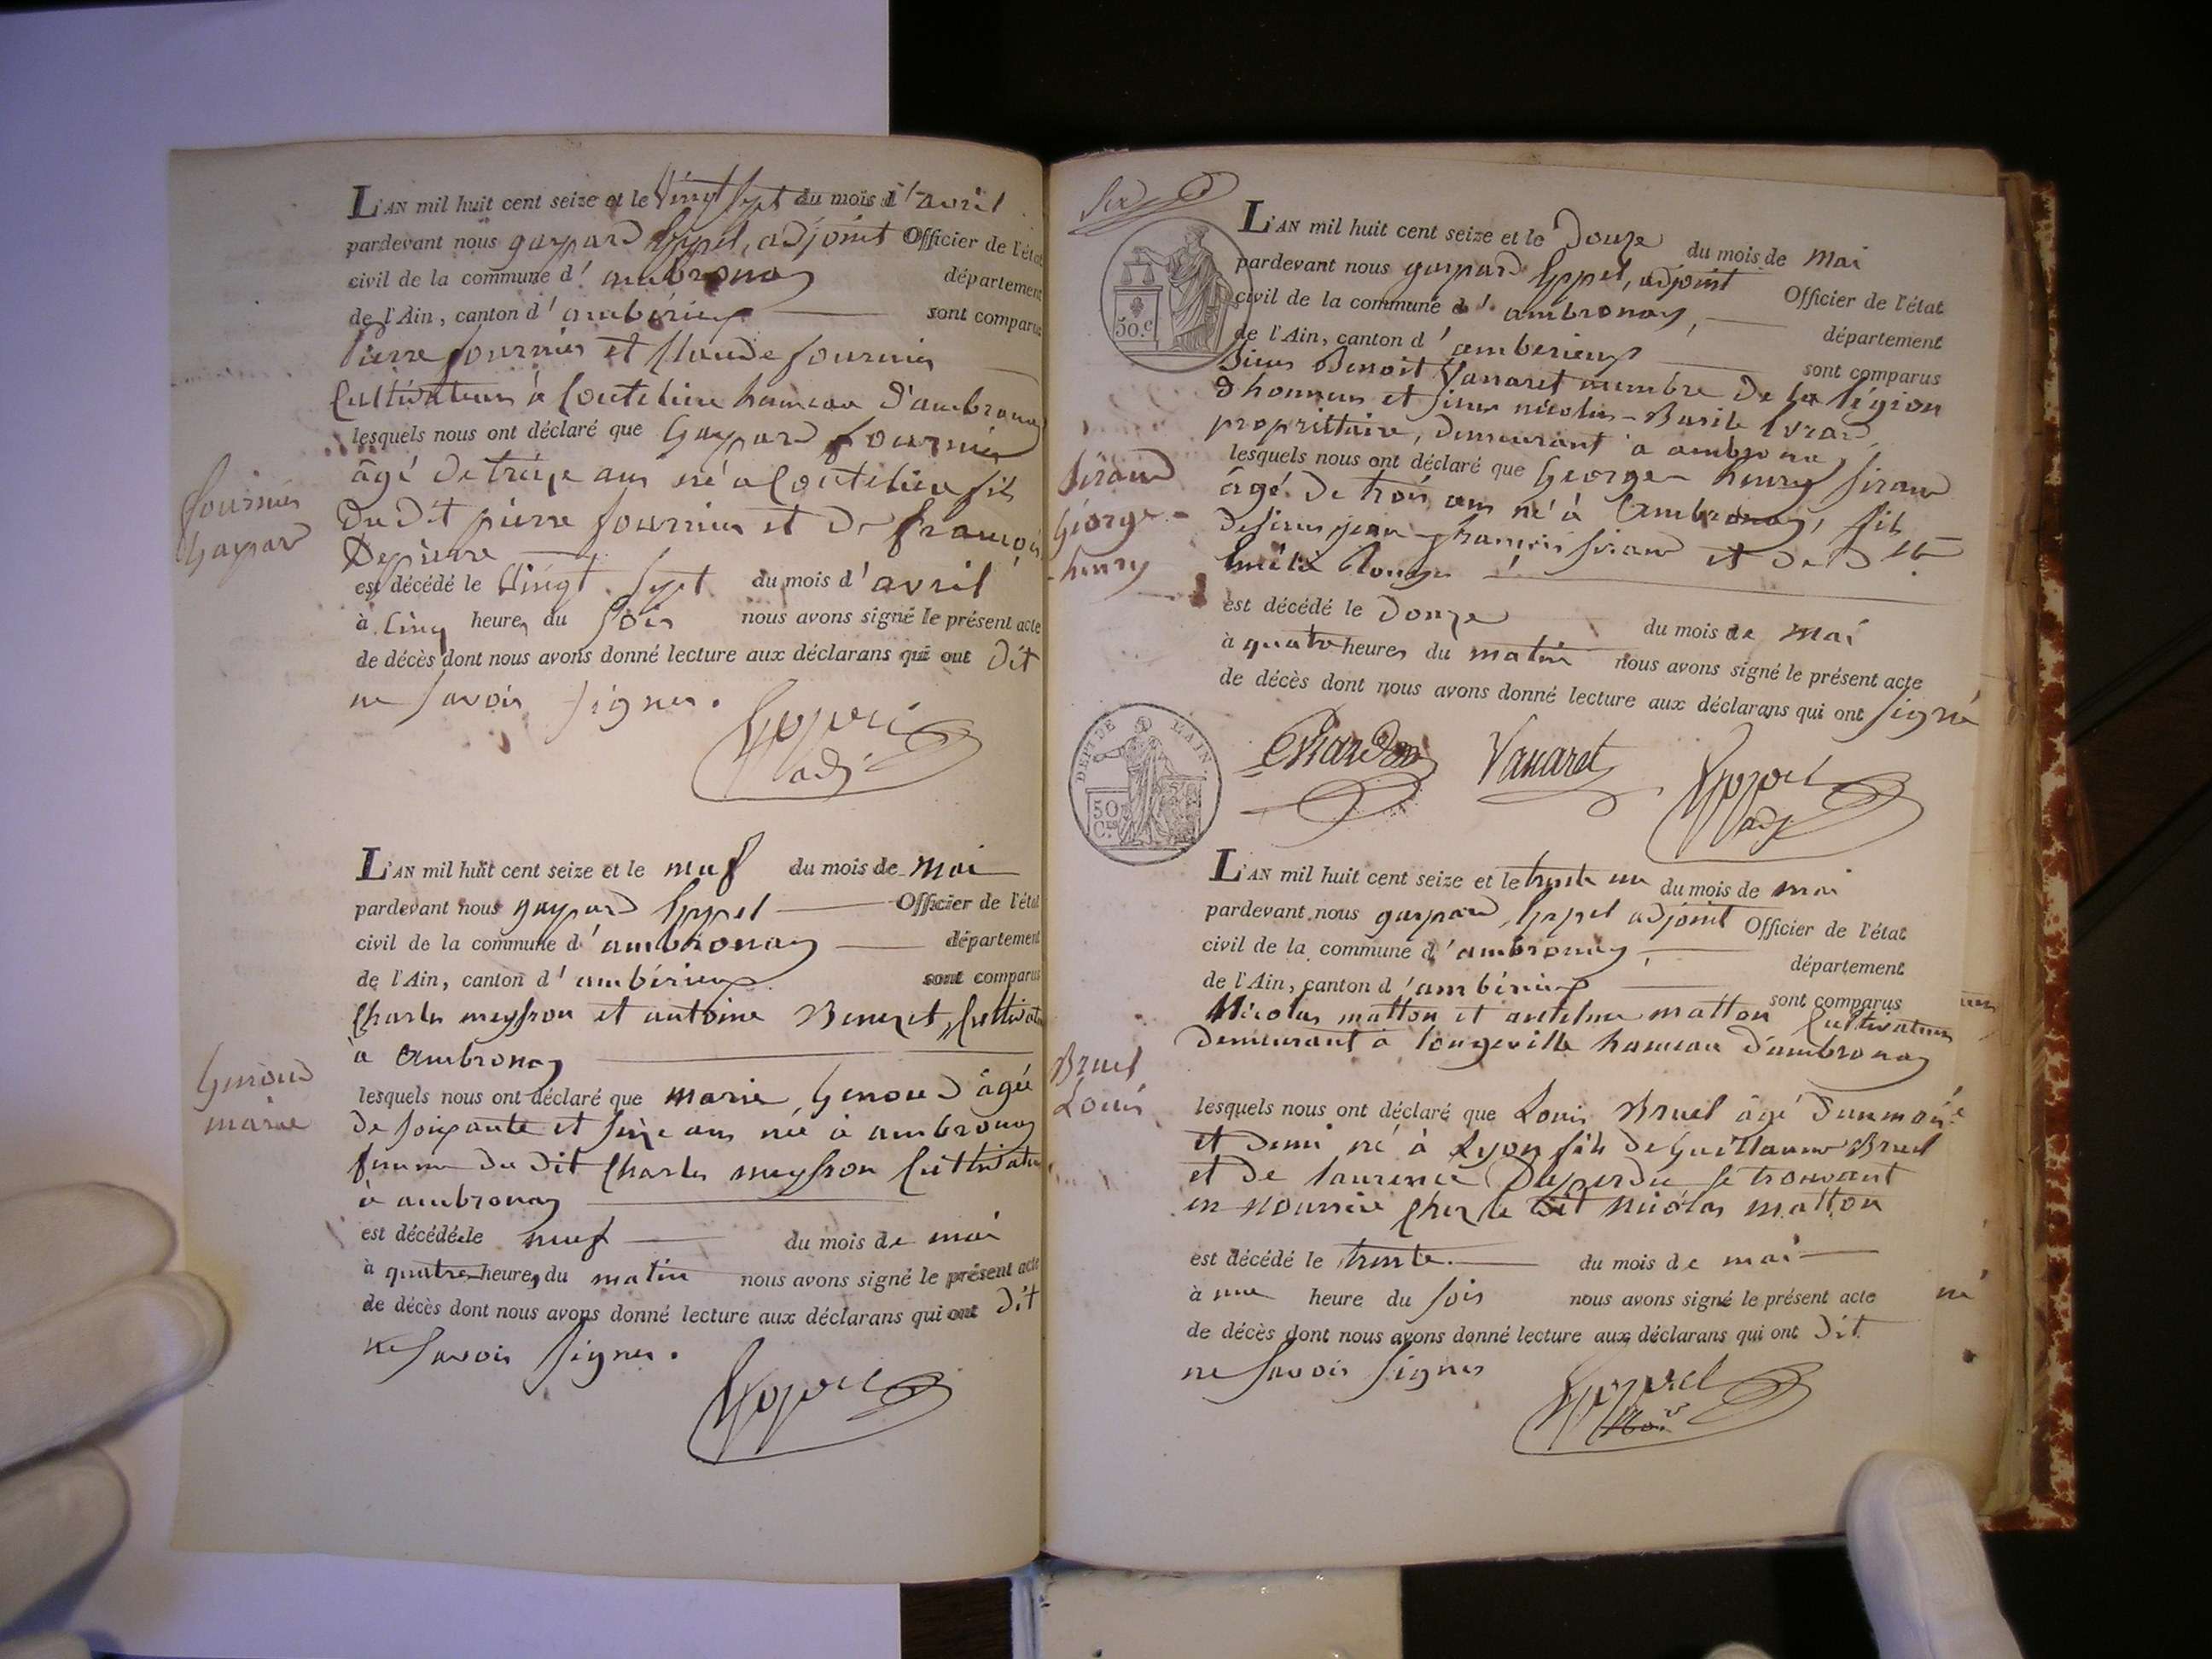 L'AN mil huit cent seize et le vingt sept du mois d'avril
pardevant nous gaspard Eppel, adjoint Officier de l'état
civil de la commune d'ambronay département
de l'Ain, canton d'ambérieux sont comparus
Pierre fournier et Claude fournier
Cultivateurs à Coutelieu hameau d'ambronay
lesquels nous ont déclaré que Gaspard fournier
fournier
gaspard
âgé de treize ans né a Coutelieu fils
du dit pierre fournier et de françois
Depierre
est décédé le vingt sept du mois d'avril
à Cinq heures du soir nous avons signé le présent acte
de décès dont nous avons donné lecture aux déclarans qui ont dit
ne savoir signer.
Eppel
adj
L'AN mil huit cent seize et le neuf du mois de mai
pardevant nous gaspard Eppel Officier de l'état
civil de la commune d'ambronay département
de l'Ain, canton d'ambérieux sont comparus
Charles meysson et antoine Benezet, Cultivat
à ambronay
Genoud
marie
lesquels nous ont déclaré que marie Genoud âgée
de soixante et seize ans née à ambronay
femme du dit Charles meysson Cultivate
à ambronay
est décédé le neuf du mois de mai
à quatre heures du matin nous avons signé le présent acte
de décès dont nous avons donné lecture aux déclarans qui ont dit
ne savoir signer.
Eppel
Six
50.c
L'AN mil huit cent seize et le Douze du mois de mai
pardevant nous gaspard Eppel, adjoint Officier de l'état
civil de la commune d'ambronay, département
de l'Ain, canton d'amberieux sont comparus
Sieur Benoit Vanaret membre de la légion
d'honneur et sieur nicolas-Basile Evrard
proprietaire, demeurant à ambronay
lesquels nous ont déclaré que George henry siraud
siraud
George-
henry
âgé de trois ans né à ambronay, fils
de sieur jean françois siraud et de dlle
est décédé le douze du mois de mai
à quatre heures du matin nous avons signé le présent acte
de décès dont nous avons donné lecture aux déclarans qui ont signé
DEPT DE L'AIN
50
C.
Vanaret
Eppel
adj
L'AN mil huit cent seize et le trente un du mois de mai
pardevant nous gaspard Eppel adjoint Officier de l'état
civil de la commune d'ambronay, département
de l'Ain, canton d'ambérieux sont comparus
Nicolas matton et antelme matton Cultivateurs
demeurant à longeville hameau d'ambronay
Bruel
Louis
lesquels nous ont déclaré que Louis Bruel âgé d'un mois
et demi né à Lyon fils de Guillaume Bruel
et de laurence Duperdu se trouvant
en nourrice chez le dit nicolas matton
est décédé le trente du mois de mai
à une heure du soir nous avons signé le présent acte
de décès dont nous avons donné lecture aux déclarans qui ont dit
ne savoir signer
Eppel